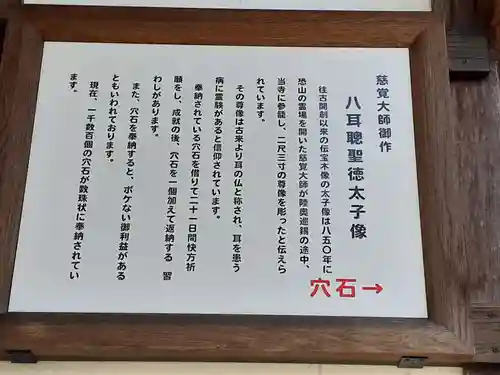 慈覚大師御作
八耳聰聖徳太子像
往古開創以来の伝宝木像の太子像は八五〇年に
恐山の霊場を開いた慈覚大師が陸奥巡錫の途中、
当寺に参籠し、二尺三寸の尊像を彫ったと伝えら
れています。
その尊像は古来より耳の仏と称され、耳を患う
病に霊験があると信仰されています。
奉納されている穴石を借りて二十一日間快方祈
願をし、成就の後、穴石を一個加えて返納する 習
わしがあります。
また、穴石を奉納すると、ボケない御利益がある
ともいわれております。
現在、一千数百個の穴石が数珠状に奉納されてい
ます。
穴石→